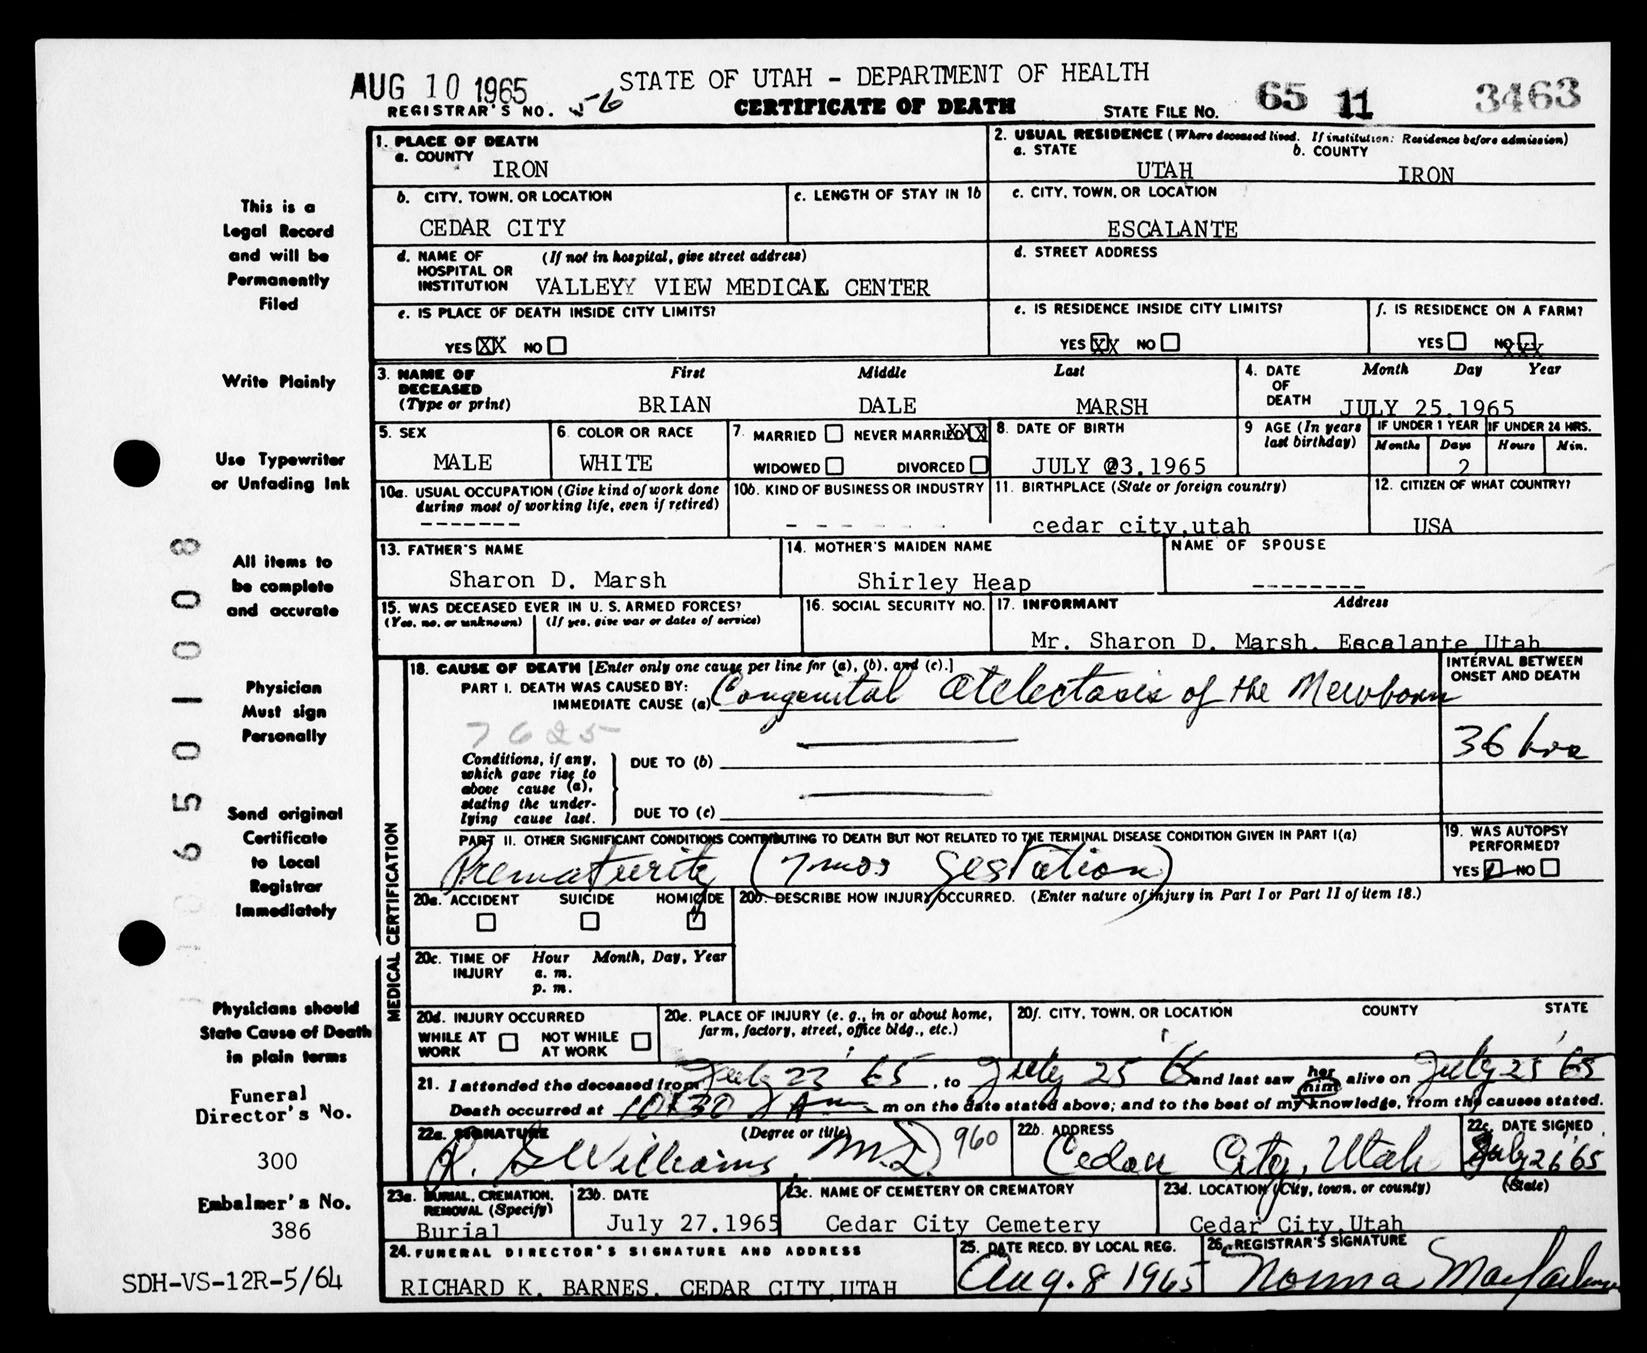 AUG 10 1965 STATE OF UTAH - DEPARTMENT OF HEALTH 65 11 3463
REGISTRAR'S NO. 56 CERTIFICATE OF DEATH STATE FILE NO.
1. PLACE OF DEATH
a. COUNTY IRON
2. USUAL RESIDENCE (Where deceased lived. If institution: Residence before admission)
a. STATE UTAH b. COUNTY IRON
b. CITY, TOWN, OR LOCATION CEDAR CITY
c. LENGTH OF STAY IN 1b
c. CITY, TOWN, OR LOCATION ESCALANTE
d. NAME OF HOSPITAL OR INSTITUTION (If not in hospital, give street address)
VALLEYY VIEW MEDICAL CENTER
d. STREET ADDRESS
e. IS PLACE OF DEATH INSIDE CITY LIMITS?
YES XX NO
e. IS RESIDENCE INSIDE CITY LIMITS?
YES XX NO
f. IS RESIDENCE ON A FARM?
YES NO XXX
3. NAME OF DECEASED (Type or print) First Middle Last
BRIAN DALE MARSH
4. DATE OF DEATH Month Day Year
JULY 25.1965
5. SEX MALE
6. COLOR OR RACE WHITE
7. MARRIED NEVER MARRIED XXX
WIDOWED DIVORCED
8. DATE OF BIRTH JULY 23.1965
9 AGE (In years last birthday)
IF UNDER 1 YEAR IF UNDER 24 HRS.
Months Days Hours Min.
2
10a. USUAL OCCUPATION (Give kind of work done during most of working life, even if retired)
-------
10b. KIND OF BUSINESS OR INDUSTRY
- - - - - -
11. BIRTHPLACE (State or foreign country)
cedar city,utah
12. CITIZEN OF WHAT COUNTRY?
USA
13. FATHER'S NAME
Sharon D. Marsh
14. MOTHER'S MAIDEN NAME
Shirley Heap
NAME OF SPOUSE
--------
15. WAS DECEASED EVER IN U. S. ARMED FORCES?
(Yes, no, or unknown) (If yes, give war or dates of service)
16. SOCIAL SECURITY NO.
17. INFORMANT Address
Mr. Sharon D. Marsh. Escalante,Utah
MEDICAL CERTIFICATION
18. CAUSE OF DEATH [Enter only one cause per line for (a), (b), and (c).]
INTERVAL BETWEEN ONSET AND DEATH
PART I. DEATH WAS CAUSED BY:
IMMEDIATE CAUSE (a) Congenital atelectasis of the Newborn
36 hrs
7625
Conditions, if any, which gave rise to above cause (a), stating the underlying cause last.
DUE TO (b)
DUE TO (c)
PART II. OTHER SIGNIFICANT CONDITIONS CONTRIBUTING TO DEATH BUT NOT RELATED TO THE TERMINAL DISEASE CONDITION GIVEN IN PART I(a)
Prematurity (7 mos gestation)
19. WAS AUTOPSY PERFORMED?
YES NO
20a. ACCIDENT SUICIDE HOMICIDE
20b. DESCRIBE HOW INJURY OCCURRED. (Enter nature of injury in Part I or Part II of item 18.)
20c. TIME OF INJURY Hour Month, Day, Year
a. m.
p. m.
20d. INJURY OCCURRED
WHILE AT WORK NOT WHILE AT WORK
20e. PLACE OF INJURY (e. g., in or about home, farm, factory, street, office bldg., etc.)
20f. CITY, TOWN, OR LOCATION COUNTY STATE
21. I attended the deceased from July 23 '65, to July 25 '65 and last saw her him alive on July 25 '65
Death occurred at 10:30 A m on the date stated above; and to the best of my knowledge, from the causes stated.
22a. SIGNATURE (Degree or title)
Williams M.D. 960
22b. ADDRESS
Cedar City, Utah
22c. DATE SIGNED
July 26 '65
23a. BURIAL, CREMATION, REMOVAL (Specify)
Burial
23b. DATE
July 27.1965
23c. NAME OF CEMETERY OR CREMATORY
Cedar City Cemetery
23d. LOCATION (City, town, or county) (State)
Cedar City,Utah
24. FUNERAL DIRECTOR'S SIGNATURE AND ADDRESS
RICHARD K. BARNES. CEDAR CITY,UTAH
25. DATE RECD. BY LOCAL REG.
Aug. 8 1965
26. REGISTRAR'S SIGNATURE
Norma
This is a
Legal Record
and will be
Permanently
Filed
Write Plainly
Use Typewriter
or Unfading Ink
All items to
be complete
and accurate
Physician
Must sign
Personally
Send original
Certificate
to Local
Registrar
Immediately
Physicians should
State Cause of Death
in plain terms
Funeral
Director's No.
300
Embalmer's No.
386
SDH-VS-12R-5/64